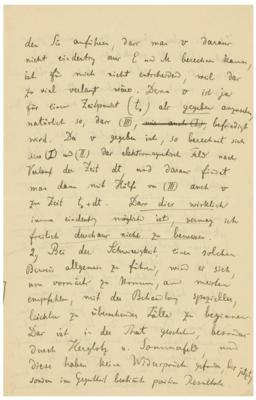 den Sie anführen, dass man v daraus
nicht eindeutig aus E und M berechnen kann,
ist für mich nicht entscheidend, weil das
zu viel verlangt wäre. Denn v ist ja
für einen Zeitpunkt (t₁) als gegeben anzusehen,
natürlich so, dass (III), befriedigt
wird. Da v gegeben ist, so berechnet sich
aus (I) und (II) das elektromagnetische Feld nach
Verlauf der Zeit dt und daraus findet
man dann mit Hülfe von (III) auch v
zu Zeit t₁+dt. Dass dies wirklich
immer eindeutig möglich ist, vermag ich
freilich durchaus nicht zu beweisen.
2) Bei der Schwierigkeit einen solchen
Beweis allgemein zu führen, wird es sich,
am meisten
empfehlen, mit der Behandlung spezieller,
leichter zu übersehender Fälle zu beginnen.
Das ist in der That geschehen, besonders
durch Herglotz u. Sommerfeld, und
diese haben keine Widersprüche gefunden,
sondern im Gegenteil Resultate